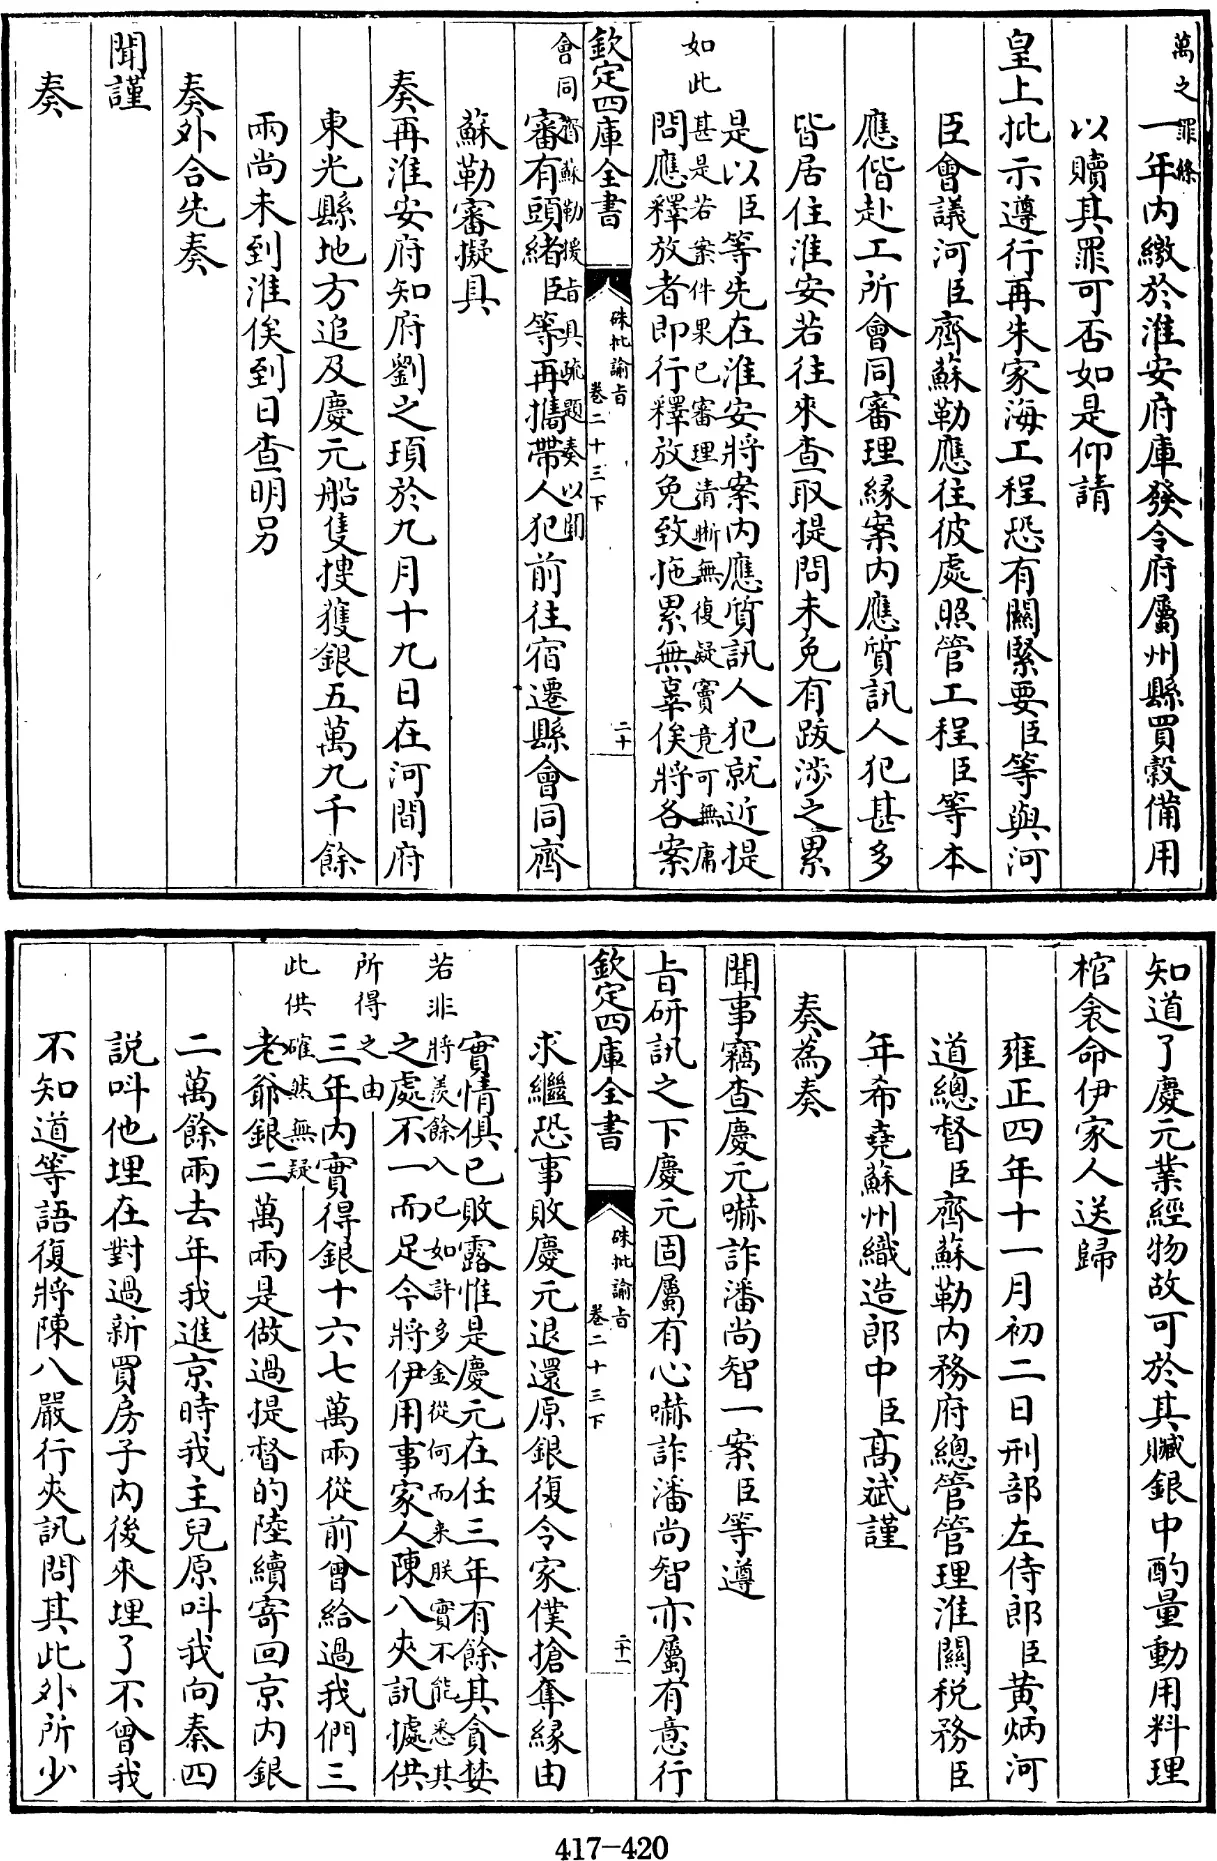 萬之罪條
一年内繳於淮安府庫發令府屬州縣買穀備用
以贖其罪可否如是仰請
皇上批示遵行再朱家海工程恐有關緊要臣等與河
臣會議河臣齊蘇勒應往彼處照管工程臣等本
應偕赴工所會同審理緣案内應質訊人犯甚多
皆居住淮安若往來查取提問未免有跋渉之累
是以臣等先在淮安將案内應質訊人犯就近提
如此甚是若案件果已審理清晰無復疑竇竟可無庸
問應釋放者即行釋放免致拖累無辜俟將各案
欽定四庫全書
硃批諭旨
卷二十三下
二十
會同齊蘇勒援旨具疏題奏以聞
審有頭緒臣等再擕帶人犯前往宿遷縣會同齊
蘇勒審擬具
奏再淮安府知府劉之頊於九月十九日在河間府
東光縣地方追及慶元船隻搜獲銀五萬九千餘
兩尚未到淮俟到日查明另
奏外合先奏
聞謹
奏
知道了慶元業經物故可於其贓銀中酌量動用料理
棺衾命伊家人送歸
雍正四年十一月初二日刑部左侍郎臣黄炳河
道總督臣齊蘇勒内務府總管管理淮關税務臣
年希堯蘇州織造郎中臣高斌謹
奏為奏
聞事竊查慶元嚇詐潘尚智一案臣等遵
旨研訊之下慶元固屬有心嚇詐潘尚智亦屬有意行
欽定四庫全書
硃批諭旨
卷二十三下
二十一
求繼恐事敗慶元退還原銀復令家僕搶奪縁由
實情俱已敗露惟是慶元在任三年有餘其貪婪
若非將羨餘入已如許多金從何而來朕實不能悉其
之處不一而足今將伊用事家人陳八夾訊據供
所得之由
三年内實得銀十六七萬兩從前曾給過我們三
此供確然無疑
老爺銀二萬兩是做過提督的陸續寄回京内銀
二萬餘兩去年我進京時我主兒原呌我向秦四
説呌他埋在對過新買房子内後來埋了不曾我
不知道等語復將陳八嚴行夾訊問其此外所少
417-420